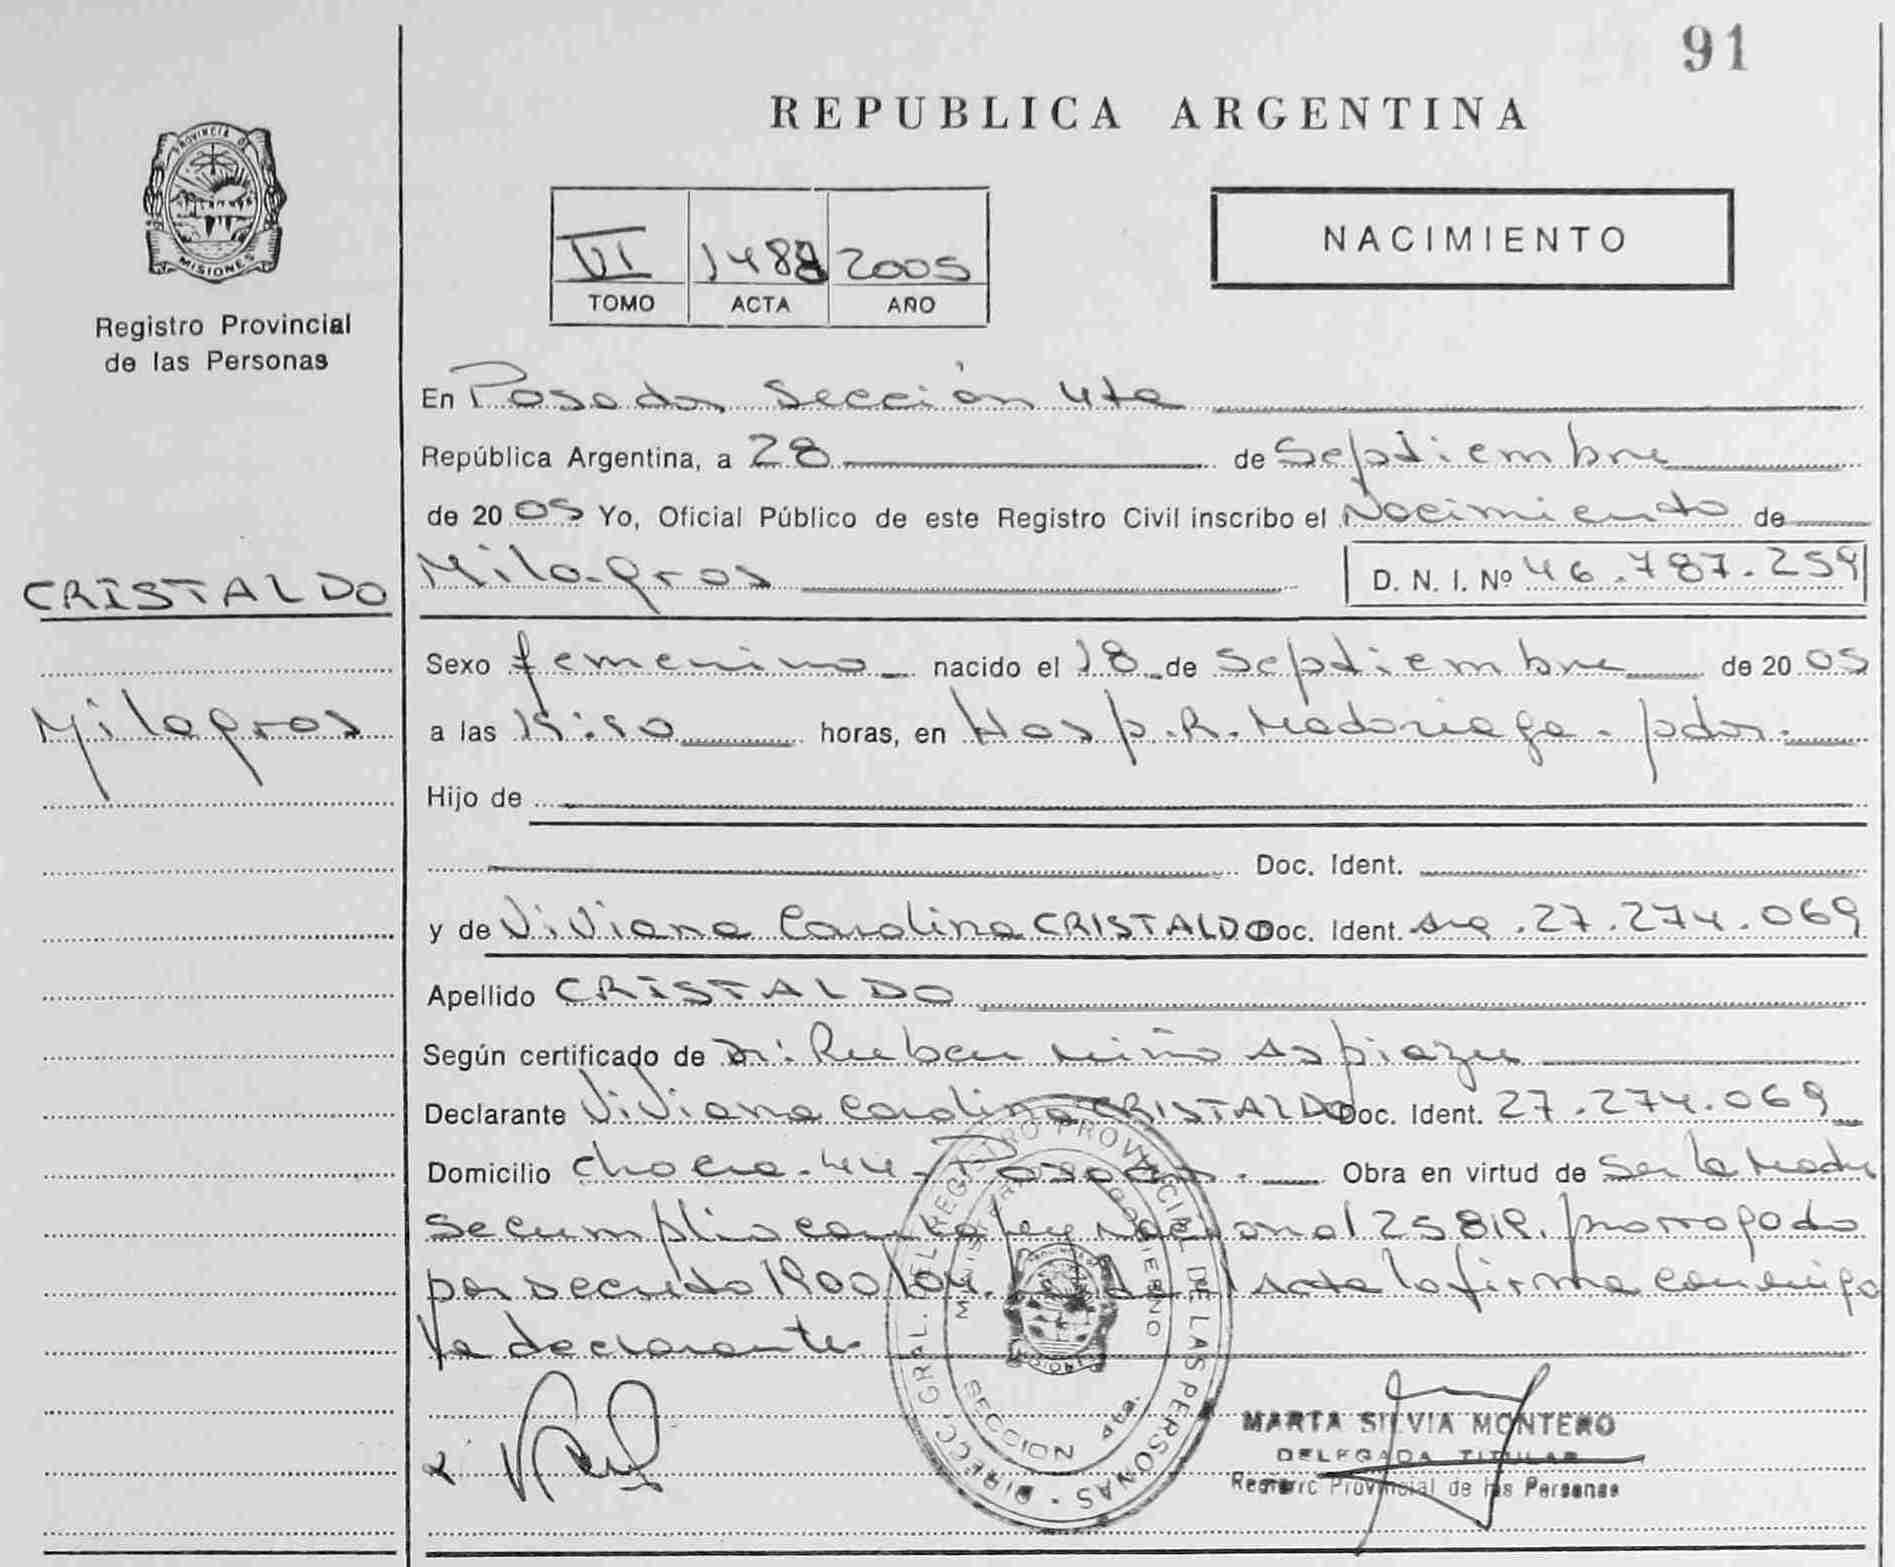 91
REPUBLICA ARGENTINA
PROVINCIA DE
MISIONES
Registro Provincial
de las Personas
VI 1488 2005
TOMO ACTA AÑO
NACIMIENTO
En Posadas Sección 4ta
República Argentina, a 28 de Septiembre
de 2005 Yo, Oficial Público de este Registro Civil inscribo el Nacimiento de
CRISTALDO
Milagros
Milagros D. N. I. Nº 46.787.259
Sexo femenino nacido el 18 de Septiembre de 2005
a las horas, en Hosp. R. Madariaga. pdas.
Hijo de
Doc. Ident.
y de Viviana Carolina CRISTALDO Doc. Ident. 27.274.069
Apellido CRISTALDO
Según certificado de Dr: Ruben Miño Aspiazu
Declarante Viviana Carolina CRISTALDO Doc. Ident. 27.274.069
Domicilio chacra 44 - Posadas. Obra en virtud de Ser la Madre
Se cumplio con la ley Nacional 25819. prorrogado
por Decreto 1900/04. del Acta la firma conmigo
la declarante
DIRECC. GRAL. DEL REGISTRO PROVINCIAL DE LAS PERSONAS
MINISTERIO GOBIERNO
SECCION 4ta.
MARTA SILVIA MONTERO
DELEGADA TITULAR
Registro Provincial de las Personas